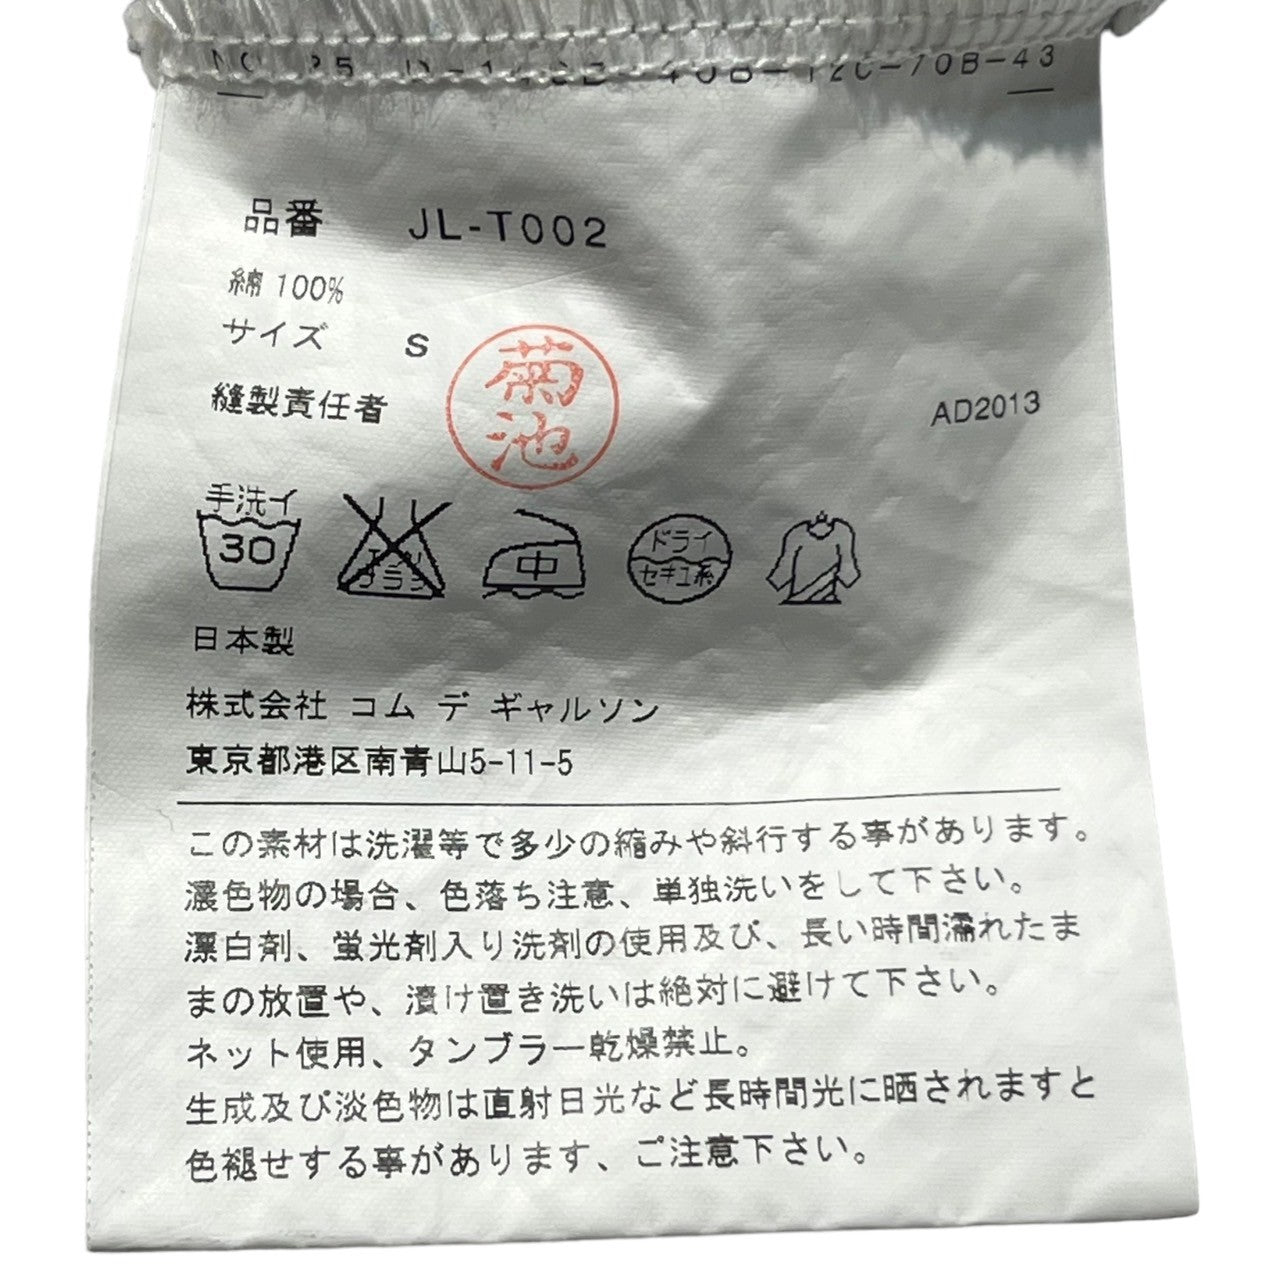 品番 JL-T002
綿 100%
サイズ S
菊池
縫製責任者
AD2013
手洗イ
30
エンソ
サラシ
中
ドライ
セキユ系
日本製
株式会社 コム デ ギャルソン
東京都港区南青山5-11-5
この素材は洗濯等で多少の縮みや斜行する事があります。
濃色物の場合、色落ち注意、単独洗いをして下さい。
漂白剤、蛍光剤入り洗剤の使用及び、長い時間濡れたま
まの放置や、漬け置き洗いは絶対に避けて下さい。
ネット使用、タンブラー乾燥禁止。
生成及び淡色物は直射日光など長時間光に晒されますと
色褪せする事があります、ご注意下さい。